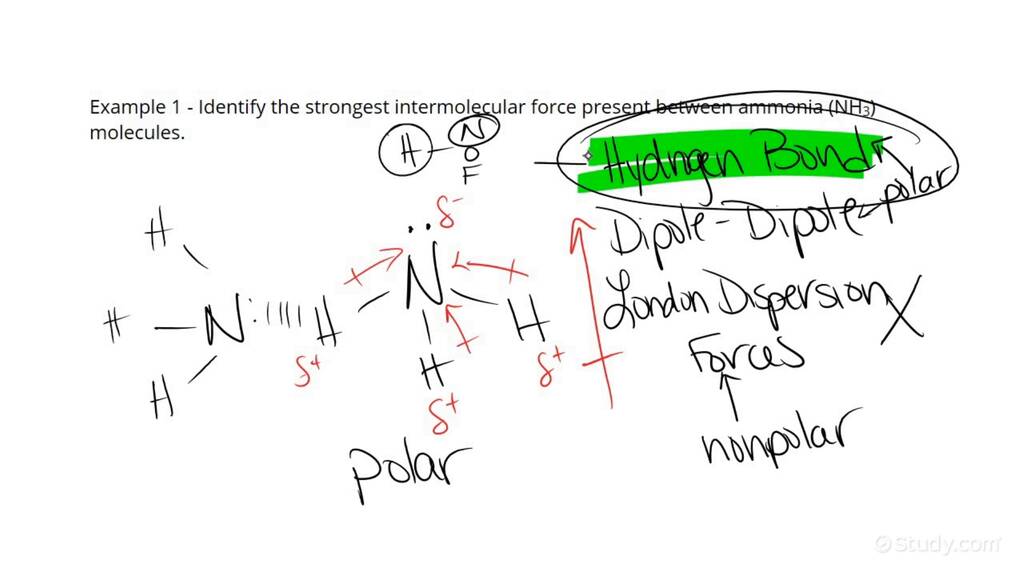 Example 1 - Identify the strongest intermolecular force present between ammonia (NH₃)
molecules.
H - N
O
F
Hydrogen Bond
Dipole - Dipole - polar
London Dispersion X
Forces
nonpolar
H
H - N : H
H
δ⁺
·· δ⁻
N
H
δ⁺
H
δ⁺
polar
Study.com